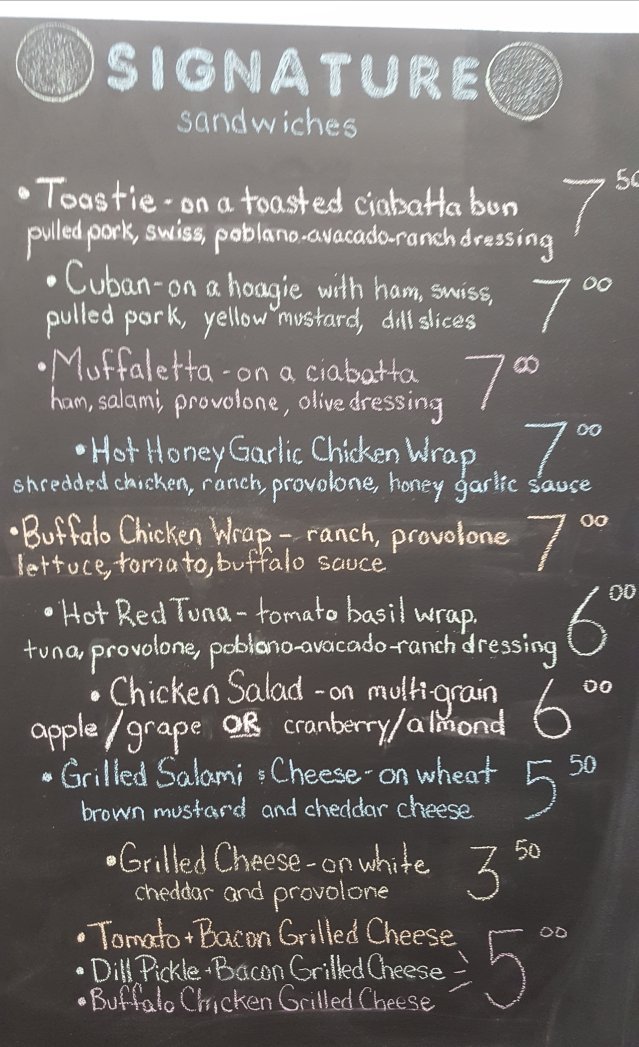 SIGNATURE
sandwiches
• Toastie - on a toasted ciabatta bun 7 50
pulled pork, swiss, poblano-avacado-ranch dressing
• Cuban - on a hoagie with ham, swiss, 7 00
pulled pork, yellow mustard, dill slices
• Muffaletta - on a ciabatta 7 00
ham, salami, provolone, olive dressing
• Hot Honey Garlic Chicken Wrap 7 00
shredded chicken, ranch, provolone, honey garlic sauce
• Buffalo Chicken Wrap - ranch, provolone 7 00
lettuce, tomato, buffalo sauce
• Hot Red Tuna - tomato basil wrap, 6 00
tuna, provolone, poblano-avacado-ranch dressing
• Chicken Salad - on multi-grain 6 00
apple/grape OR cranberry/almond
• Grilled Salami & Cheese - on wheat 5 50
brown mustard and cheddar cheese
• Grilled Cheese - on white 3 50
cheddar and provolone
• Tomato + Bacon Grilled Cheese
• Dill Pickle + Bacon Grilled Cheese 5 00
• Buffalo Chicken Grilled Cheese